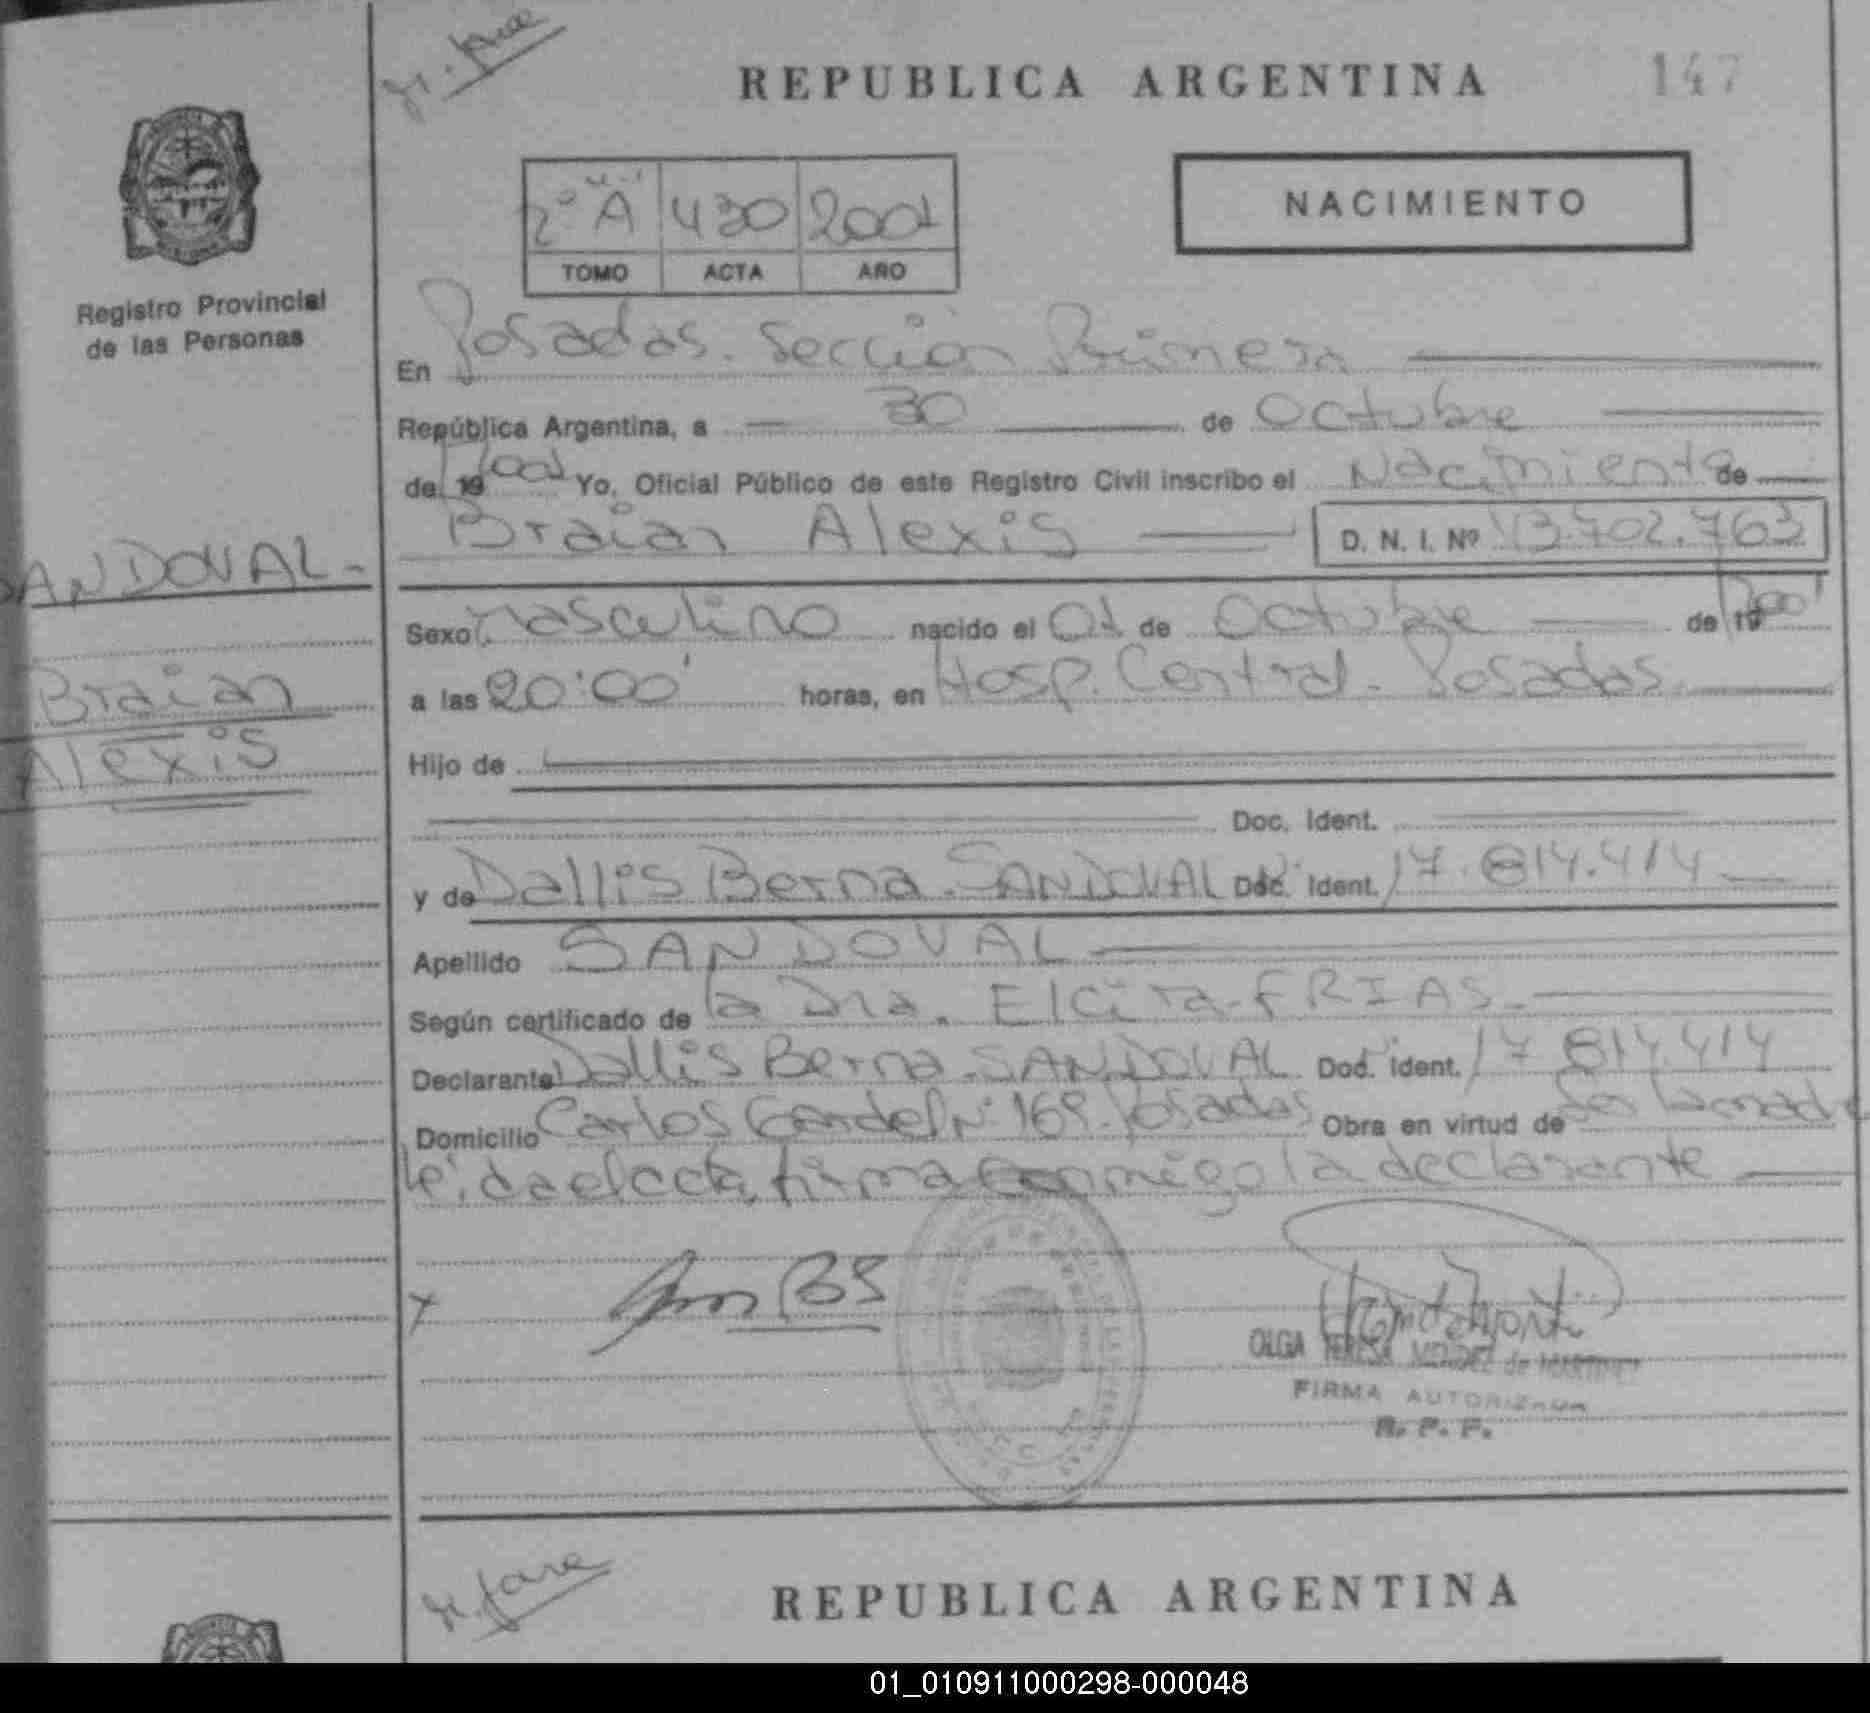 REPUBLICA ARGENTINA
147
2º "A" 430 2001
TOMO ACTA AÑO
NACIMIENTO
Registro Provincial
de las Personas
En Posadas. Sección Primera
República Argentina, a 30 de Octubre
de 19 2001 Yo, Oficial Público de este Registro Civil inscribo el Nacimiento de
Braian Alexis D. N. I. Nº 43.702.763
SANDOVAL-
Braian
Alexis
Sexo Masculino nacido el 01 de Octubre de 19 2001
a las 20:00' horas, en Hosp. Central. Posadas
Hijo de
Doc. Ident.
y de Dallis Berna. SANDOVAL Doc. Ident. 17.814.414
Apellido SANDOVAL
Según certificado de la Dra. Elcira FRIAS.
Declarante Dallis Berna. SANDOVAL Doc. Ident. 17.814.414
Domicilio Carlos Gardel Nº 169. Posadas Obra en virtud de Ser la madre
leida el acta, firma conmigo la declarante
X
OLGA TERESA de
FIRMA AUTORIZADA
R. P. P.
REPUBLICA ARGENTINA
01_010911000298-000048